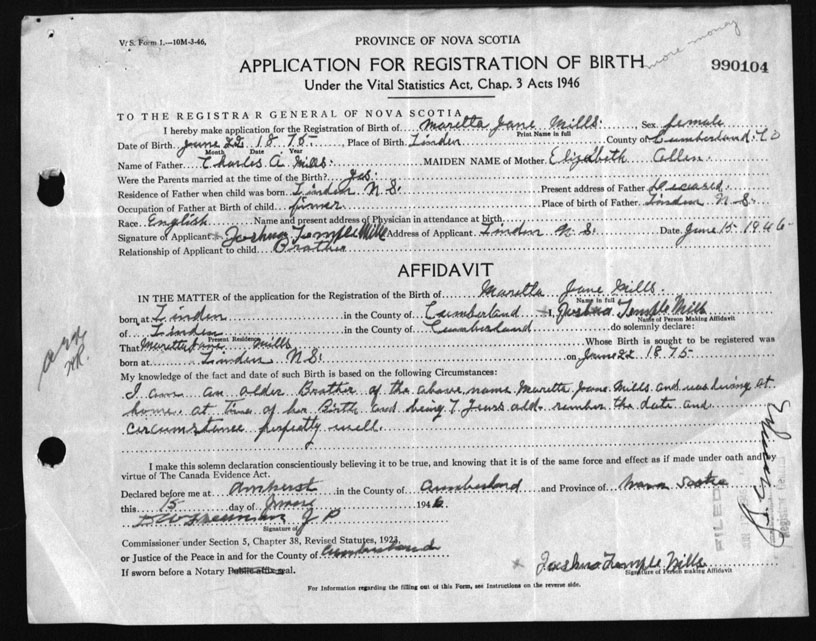 V. S. Form 1.—10M-3-46.
PROVINCE OF NOVA SCOTIA
more money
APPLICATION FOR REGISTRATION OF BIRTH
990104
Under the Vital Statistics Act, Chap. 3 Acts 1946
TO THE REGISTRAR GENERAL OF NOVA SCOTIA
I hereby make application for the Registration of Birth of Maretta Jane Mills. Sex female
Print Name in full
Date of Birth June 22 1875. Place of Birth Linden County of Cumberland. Co
Month Date Year
Name of Father Charles A Mills MAIDEN NAME of Mother Elizabeth Allen.
Were the Parents married at the time of the Birth? yes.
Residence of Father when child was born Linden N.S. Present address of Father Deceased.
Occupation of Father at Birth of child farmer Place of birth of Father Linden N.S.
Race English Name and present address of Physician in attendance at birth
Signature of Applicant x Joshua Temple Mills Address of Applicant Linden N.S. Date June 15 1946
Relationship of Applicant to child Brother
AFFIDAVIT
IN THE MATTER of the application for the Registration of the Birth of Maretta Jane Mills.
Name in full
born at Linden in the County of Cumberland I, Joshua Temple Mills
Name of Person Making Affidavit
of Linden in the County of Cumberland do solemnly declare:
Present Residence
That Maretta Jane Mills Whose Birth is sought to be registered was
born at Linden N.S. on June 22 1875
My knowledge of the fact and date of such Birth is based on the following Circumstances:
I am an older Brother of the above name Maretta Jane Mills and was living at
home at time of her Birth and being 7 years old. rember the date and
circumstance perfectly well.
I make this solemn declaration conscientiously believing it to be true, and knowing that it is of the same force and effect as if made under oath and by
virtue of The Canada Evidence Act.
Declared before me at Amherst in the County of Cumberland and Province of Nova Scotia
this 15 day of June 1946
Freeman J P
Signature of
Commissioner under Section 5, Chapter 38, Revised Statutes, 1923,
or Justice of the Peace in and for the County of Cumberland
If sworn before a Notary Public affix seal.
x Joshua Temple Mills
Signature of Person making Affidavit
FILED
For Information regarding the filling out of this Form, see Instructions on the reverse side.